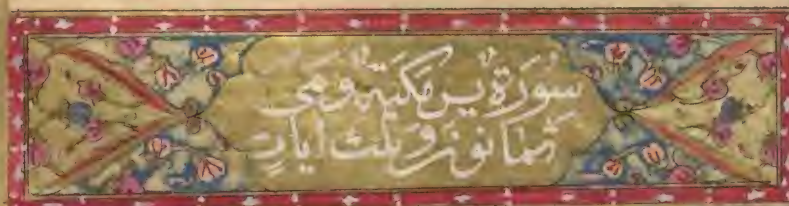 سورة يس مكية وهي
ثمانون وثلث ايات